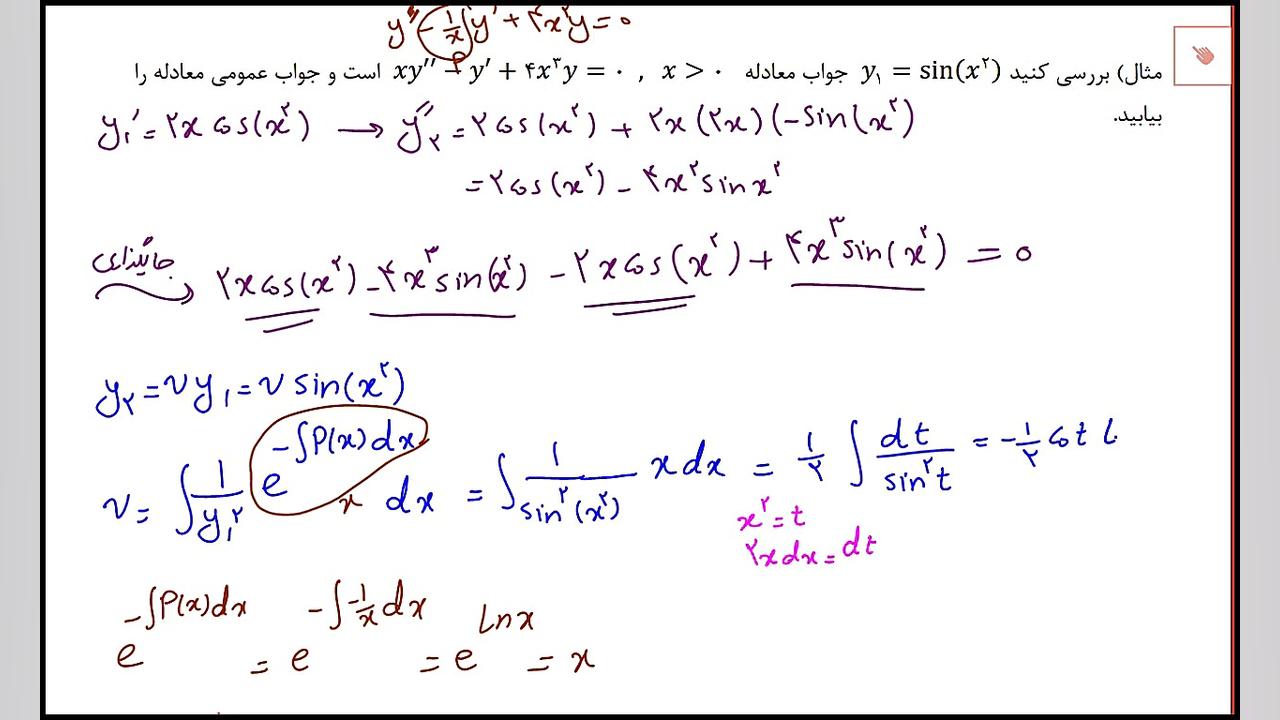 y″ - 1/x y′ + ۴x²y = ۰
مثال) بررسی کنید y₁ = sin(x²) جواب معادله xy″ - y′ + ۴x³y = ۰ , x > ۰ است و جواب عمومی معادله را
بیابید.
y₁′ = ۲x cos(x²) → y₂″ = ۲cos(x²) + ۲x(۲x)(-sin(x²)
= ۲cos(x²) - ۴x² sin x²
جایگذاری ۲x cos(x²) - ۴x³ sin(x²) - ۲x cos(x²) + ۴x³ sin(x²) = ۰
y₂ = v y₁ = v sin(x²)
v = ∫ 1/y₁² e^(-∫P(x)dx) x dx = ∫ 1/sin²(x²) x dx = ۱/۲ ∫ dt/sin²t = -۱/۲ cot t
x² = t
۲x dx = dt
e^(-∫P(x)dx) = e^(-∫-1/x dx) = e^(Ln x) = x